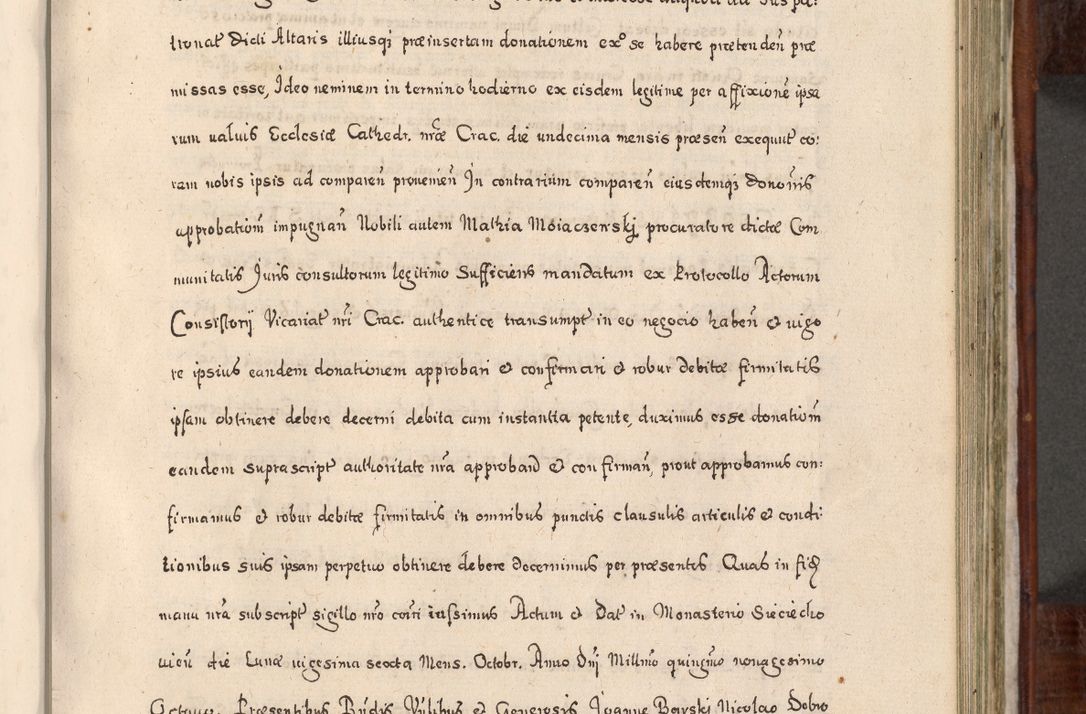 tronat̃ Dicti Altaris illiusq̃ præinsertam donationem exº se habere prætenden̄ præ
missas esse, Ideo neminem in termino hodierno ex eisdem legitime per affixionē ipsa
rum valuis Ecclesiæ Cathedr. nr̃æ Crac. die undecima mensis præsen̄ exequut̃ co:
ram nobis ipsis ad comparen̄ prouenien̄ In contrarium comparen̄ eiusdemq̃ donōnis
approbationm̄ impugnan̄ Nobili autem Mathia Moiaczewskj procuratore dictæ Com
munitatis Juris consultorum legitimo Sufficiens mandatum ex Protocollo Actorum
Consistorij Vicariat̃ nr̃i Crac. authentice transumpt̃ in eo negocio haben̄ & vigo
re ipsius eandem donationem approbari & confirmari & robur debitæ firmitatis
ipsam obtinere debere decerni debita cum instantia petente, duximus esse donationm̄
eandem suprascript̃ authoritate nr̃a approband̄ & confirman̄, prout approbamus con:
firmamus & robur debitæ firmitatis in omnibus punctis clausulis articulis & condi:
tionibus suis ipsam perpetuo obtinere debere decernimus per præsentes Quas in fid̄
manu nr̃a subscript̃ sigillo nr̃o com̄ri iussimus Actum & Dat̃ in Monasterio Sieciecho
uien̄ die Lunæ vigesima sexta Mens. Octobr. Anno Dn̄j Millm̄o quingm̄o nonagesimo
Octauo. Præsentibus Rn̄dis Vn̄libus & Generosis Joanne Borski Nicolao Dobro